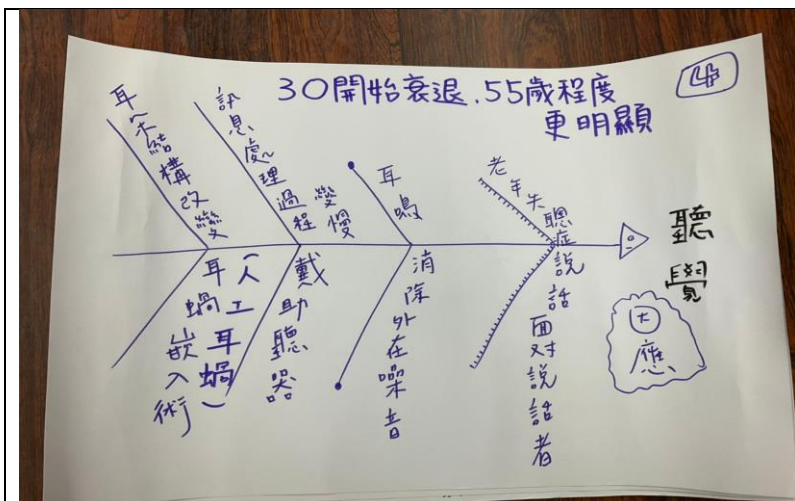 30開始衰退.55歲程度
更明顯
4
耳朵結構改變
訊息處理過程
變慢
耳鳴
老年失聰症
聽覺
(人工耳蝸)
耳蝸嵌入術
戴助聽器
消除外在噪音
說話面對說話者
因應